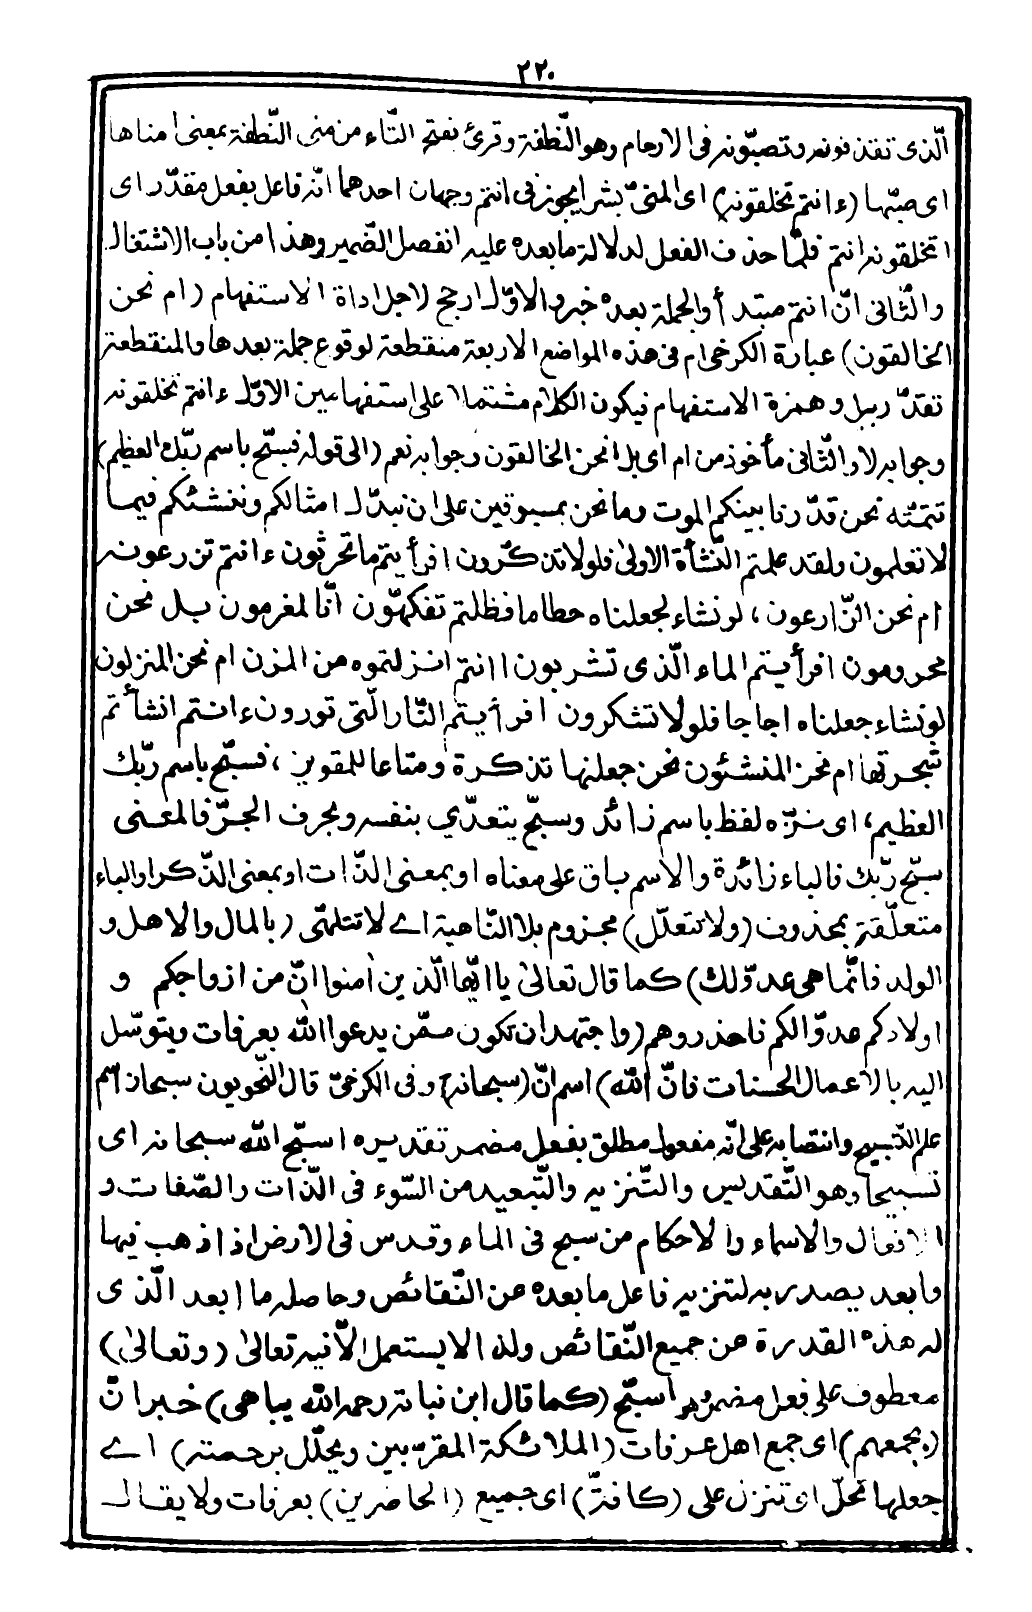 ٢٢٠
الّذى تقذفونه وتصبّونه فى الارحام وهو النّطفة وقرئ بفتح التّاء من منى النّطفة بمعنى امناها
اى صبّها (ءانتم تخلقونه) اى المنىّ بشرا يجوز فى انتم وجهان احدهما انّه فاعل بفعل مقدّر اى
اتخلقونه انتم فلمّا حذف الفعل لدلالة ما بعده عليه انفصل الضّمير وهذا من باب الاشتغال
والثّانى انّ انتم مبتدأ والجملة بعده خبر والاوّل ارجح لاجل اداة الاستفهام (ام نحن
الخالقون) عبارة الكرخى ام فى هذه المواضع الاربعة منقطعة لوقوع جملة بعدها والمنقطعة
تقدّر ببل وهمزة الاستفهام فيكون الكلام مشتملا على استفهامين الاوّل ءانتم تخلقونه
وجوابه لا والثّانى مأخوذ من ام اى بل انحن الخالقون وجوابه نعم (الى قوله فسبّح باسم ربّك العظيم)
تتمّته نحن قدّرنا بينكم الموت وما نحن بمسبوقين على ان نبدّل امثالكم وننشئكم فيما
لا تعلمون ولقد علمتم النّشأة الاولىٰ فلولا تذكّرون افرأيتم ما تحرثون ءانتم تزرعونه
ام نحن الزّارعون، لو نشاء لجعلناه حطاما فظلتم تفكّهون انّا لمغرمون بل نحن
محرومون افرأيتم الماء الّذى تشربون اانتم انزلتموه من المزن ام نحن المنزلون
لو نشاء جعلناه اجاجا فلولا تشكرون افرأيتم النّار الّتى تورون ءانتم انشأتم
شجرتها ام نحن المنشئون نحن جعلنها تذكرة ومتاعا للمقوين، فسبّح باسم ربّك
العظيم، اى نزّه لفظ باسم زائد وسبّح يتعدّي بنفسه وبحرف الجرّ فالمعنى
سبّح ربّك فالباء زائدة والاسم باق على معناه او بمعنى الذّات او بمعنى الذّكر او الباء
متعلّقة بمحذوف (ولا تتعلّل) مجزوم بلا النّاهية اے لا تتلهّى (بالمال والاهل و
الولد فانّما هى عدوّ لك) كما قال تعالىٰ يا ايّها الّذين اٰمنوا انّ من ازواجكم و
اولادكم عدوّا لكم فاحذروهم (واجتهد ان تكون ممّن يدعوا اللّٰه بعرفات ويتوسّل
اليه بالاعمال الحسنات فانّ اللّٰه) اسم انّ (سبحانه) وفى الكرخىّ قال النّحويون سبحان اسم
علم للتّسبيح وانتصابه على انّه مفعول مطلق بفعل مضمر تقديره اسبّح اللّٰه سبحانه اى
تسبيحا وهو التّقديس والتّنزيه والتّبعيد من السّوء فى الذّات والصّفات و
الافعال والاسماء والاحكام من سبح فى الماء وقدس فى الارض اذا ذهب فيها
وابعد يصدر به لتنزيه فاعل ما بعده عن النّقائص وحاصله ما ابعد الّذى
له هذه القدرة عن جميع النّقائص ولذا لا يستعمل الّا فيه تعالىٰ (وتعالىٰ)
معطوف على فعل مضمر وهو اسبّح (كما قال ابن نباتة رحمه اللّٰه يباهى) خبر انّ
(بجمعهم) اى جمع اهل عرفات (الملائكة المقرّبين ويجلّل برحمته) اے
جعلها تحلّ اى تنزل على (كافّة) اى جميع (الحاضرين) بعرفات ولا يقال